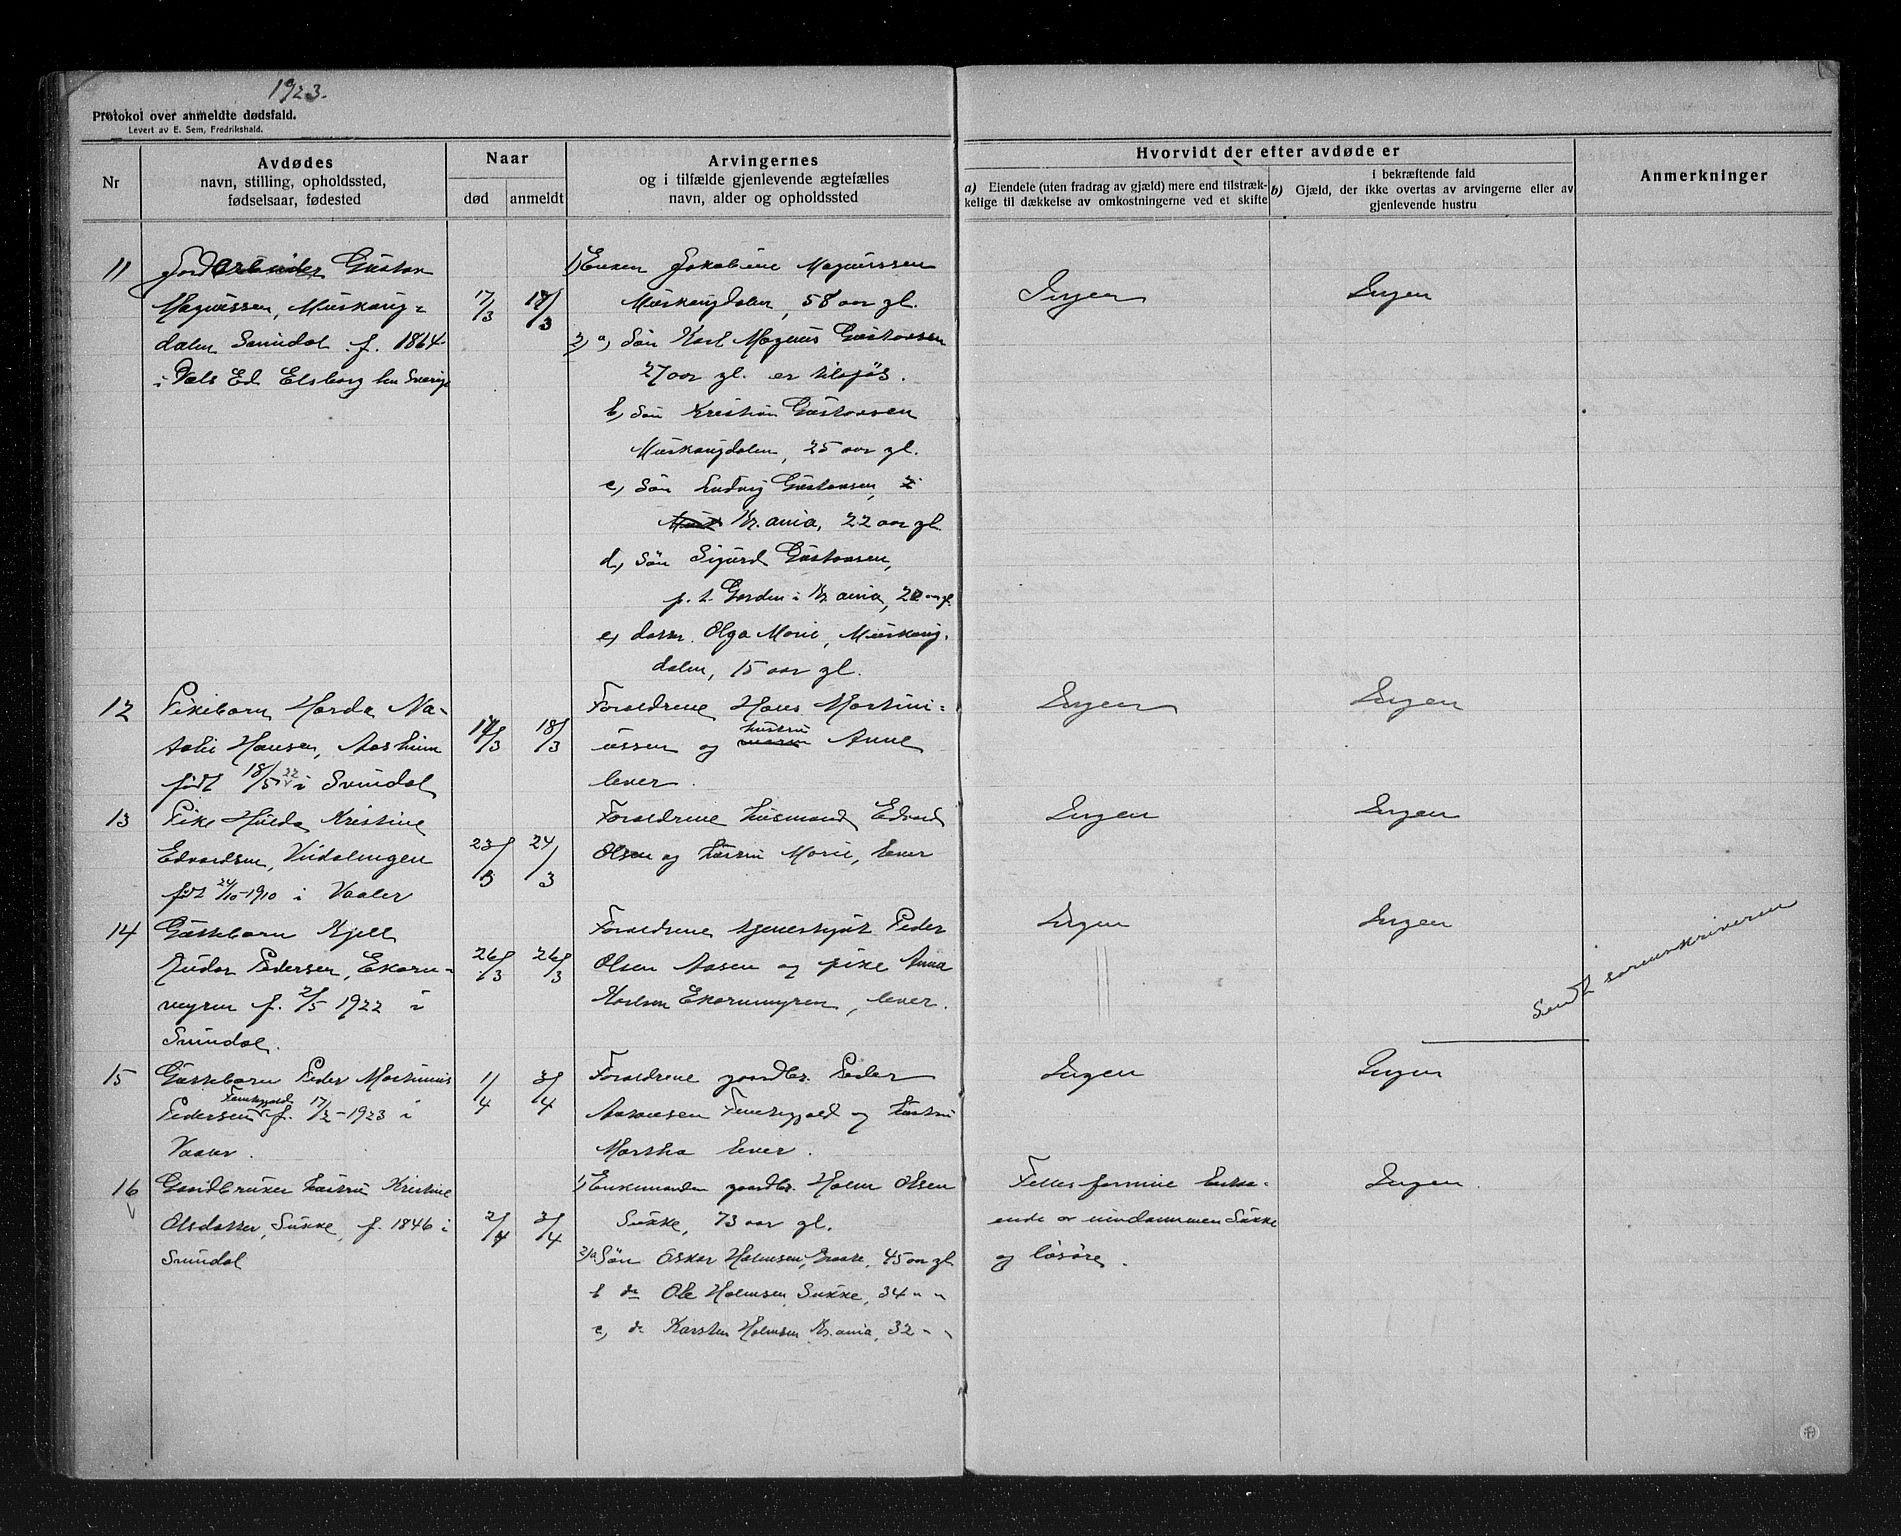 1923.
Protokol over anmeldte dødsfald.
Levert av E. Sem, Fredrikshald.
Nr
Avdødes
navn, stilling, opholdssted,
fødselsaar, fødested
Naar
død
anmeldt
Arvingernes
og i tilfælde gjenlevende ægtefælles
navn, alder og opholdssted
Hvorvidt der efter avdøde er
a) Eiendele (uten fradrag av gjæld) mere end tilstræk-
kelige til dækkelse av omkostningerne ved et skifte
i bekræftende fald
b) Gjæld, der ikke overtas av arvingerne eller av
gjenlevende hustru
Anmerkninger
11 Jordarbeider Gustav
Magnussen, Murskaug-
dalen Svindal f. 1864
i Ed Elsborg len Sverige
17/3 18/3
1) Enken Jakobine Magnussen
Murskaugdalen, 58 aar gl.
2) a) Søn Karl Magnus Gustavsen
27 aar gl. er tilsjøs.
b) Søn Kristian Gustavsen
Murskaugdalen, 25 aar gl.
c) Søn Ludvig Gustavsen,
Kr.ania, 22 aar gl.
d) Søn Sigurd Gustavsen,
p.t. Garden i Kr.ania, 20 aar gl.
e) datter Olga Marie, Murskaug-
dalen, 15 aar gl.
Ingen Ingen
12 Pikebarn Harda Na-
talie Hansen, Aasheim
født 18/5 22 i Svindal
17/3 18/3
Forældrene Hans Martini-
ussen og hustru Anne
lever.
Ingen Ingen
13 Pike Hulda Kristine
Edvardsen, Vidalingen
født 24/10-1910 i Vaaler
23/3 24/3
Forældrene husmand Edvard
Olsen og hustru Marie, lever
Ingen Ingen
14 Guttebarn Kjell
Reidar Pedersen, Ekorn-
myren f. 2/5 1922 i
Svindal.
26/3 26/3
Forældrene tjenestgut Peder
Olsen Aasen og pike Anna
Karlsen Ekornmyren, lever.
Ingen Ingen
"
Sendt sorenskriveren
15 Guttebarn Peder Martinius
Pedersen Femkjegald f. 17/2-1923 i
Vaaler.
1/4 3/4
Forældrene gaardbr. Peder
Aasmsen og hustru
Martha lever.
Ingen Ingen
16 Gardbruker hustru Kristine
Olsdatter, Sukke, f. 1846 i
Svindal
2/4 3/4
1) Enkemanden gaardbr. Holm Olsen
Sukke, 73 aar gl.
2/a Søn Oskar Holmsen, Graate, 45 aar gl
b do Ole Holmsen Sukke, 34 " "
c, do Karsten Holmsen Kr.ania, 32 " "
Felles formue bestaa-
ende av eiendommen Sukke
og løsøre.
Ingen.